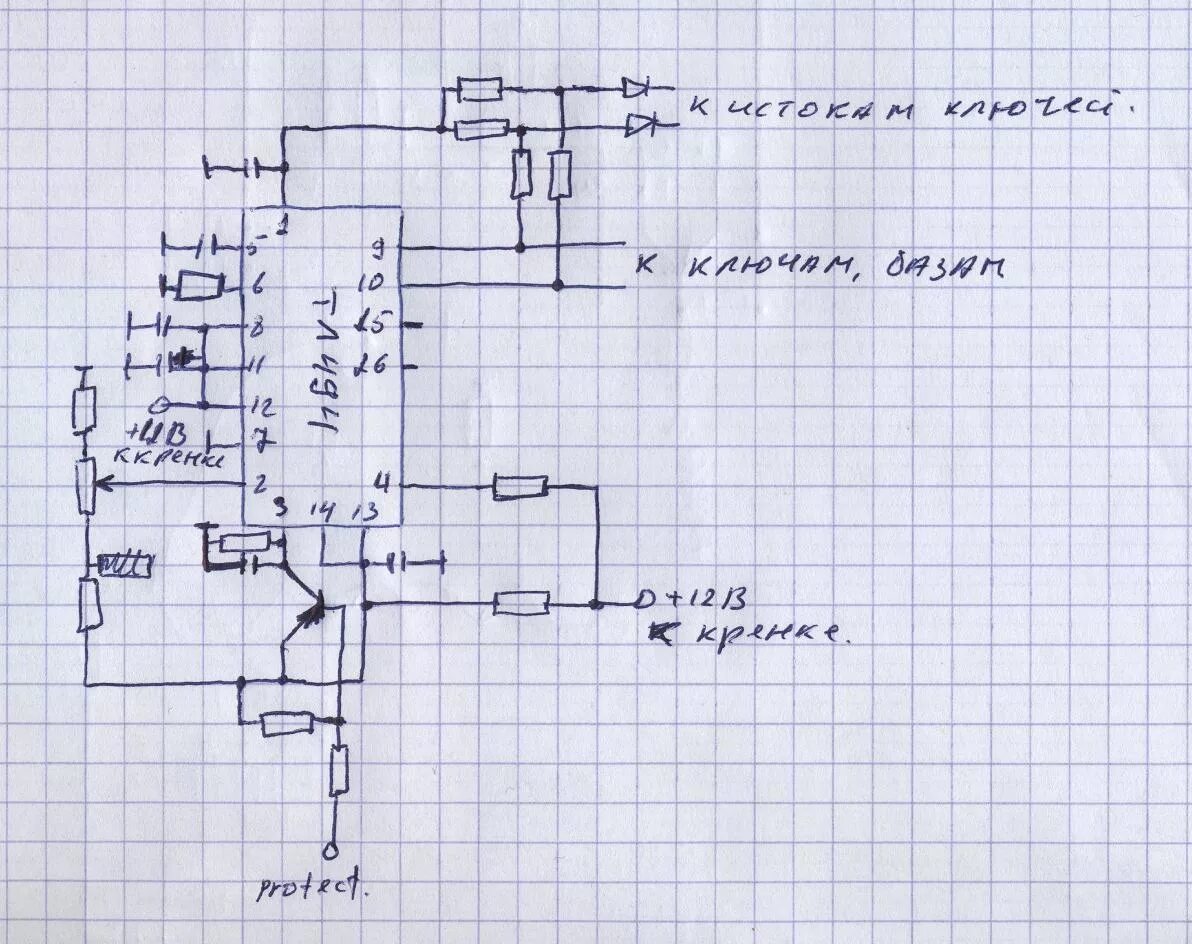 к истокам ключей.
1
5
9
к ключам, базам
6
10
8
15
11
16
12
+12В
к кренке
7
2
4
3
14
13
+12В
к кренке.
protect.